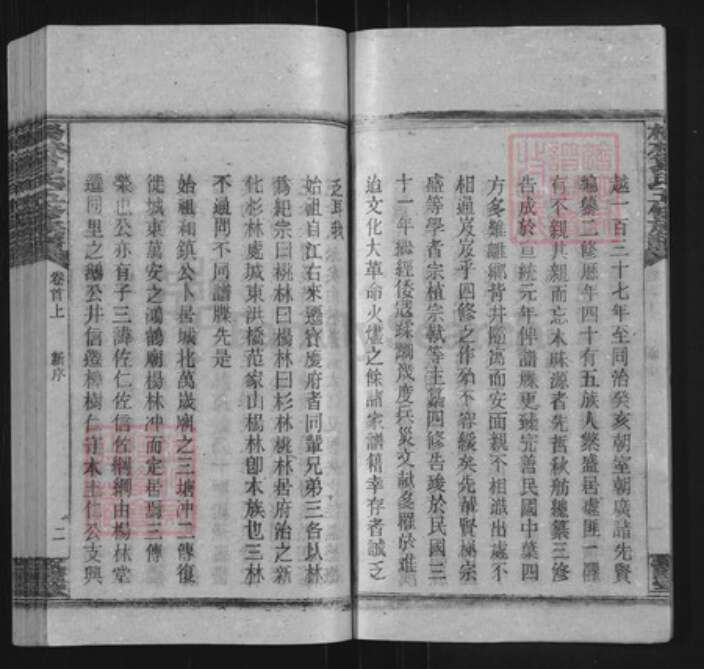 越一百三十七年至同治癸亥朝室朝廣諸先賢
編纂二修歷年四十有五族人繁盛居處匪一罹
有不親其親而忘木昧源者先哲秋舫總纂三修
告成於宣統元年俾譜牒更臻完善民國中葉四
方多難離鄉背井隨寓而安面親不相識出處不
相通岌岌乎四修之作殆不容緩矣先輩賢極宗
盛等學者宗植宗猷等主纂四修告竣於民國三
十一年繼經倭寇蹂躪幾度兵災文獻多罹於難
迨文化大革命火爐之餘諸家譜籍幸存者誠乏
乏耳我
始祖自江右來遷寶慶府者同輩兄弟三各以林
為紀宗曰桃林曰楊林曰杉林桃林居府治之新
化杉林處城東洪橋范家山楊林卽本族也三林
不通問不同譜牒先是
始祖和鎮公卜居城北萬歲廟之三塘冲二傳復
徙城東萬安之鴻鶴廟楊林冲而定居焉三傳
榮也公亦有子三諱佐仁佐信佐綱綱由楊林堂
遷同里之鵝公井信遷樟樹仁守木土仁公支興
卷首上
新序
二